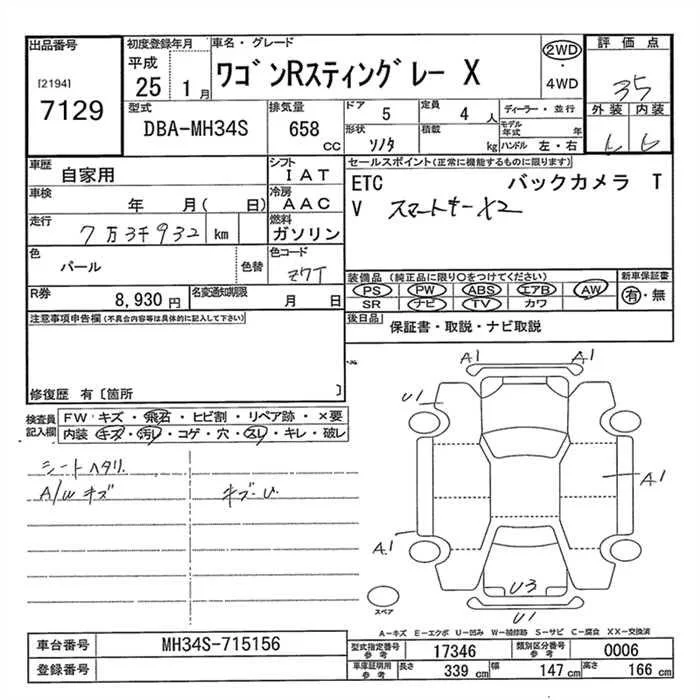 出品番号
[2194]
7129
初度登録年月
平成
25 1月
車名・グレード
ワゴンRスティングレー X
2WD
・
4WD
評価点
35
外装 内装
型式
DBA-MH34S
排気量
658
CC
ドア
5
定員
4人
形状
ソノタ
積載
kg
ディーラー・並行
モデル年式 年
ハンドル 左・右
車歴
自家用
シフト
IAT
車検
年 月( 日)
冷房
AAC
走行
7万3千932 km
燃料
ガソリン
色
パール
色替
色コード
Z7T
R券
8,930円
名変通知期限
月 日
セールスポイント(正常に機能するものに限ります)
ETC バックカメラ T
V スマートキーX2
装備品(純正品に限り○をつけてください)
PS PW ABS エアB AW
SR ナビ TV カワ
新車保証書
有・無
後日品
保証書・取説・ナビ取説
注意事項申告欄(不具合内容等は具体的に記入して下さい)
修復歴 有〔箇所 〕
検査員
記入欄
FW キズ・飛石・ヒビ割・リペア跡・×要
内装 キズ・汚レ・コゲ・穴・スレ・キレ・破レ
シートヘタリ
A/W キズ
キズ・U
A1 A1
U1
A1
A1
U3
U1
スペア
A-キズ E-エクボ U-凹み W-補修跡 S-サビ C-腐食 XX-交換済
車台番号
MH34S-715156
登録番号
型式指定番号
参考
17346
類別区分番号
参考
0006
車庫証明用
参考
長さ
339 cm
幅
147 cm
高さ
166 cm